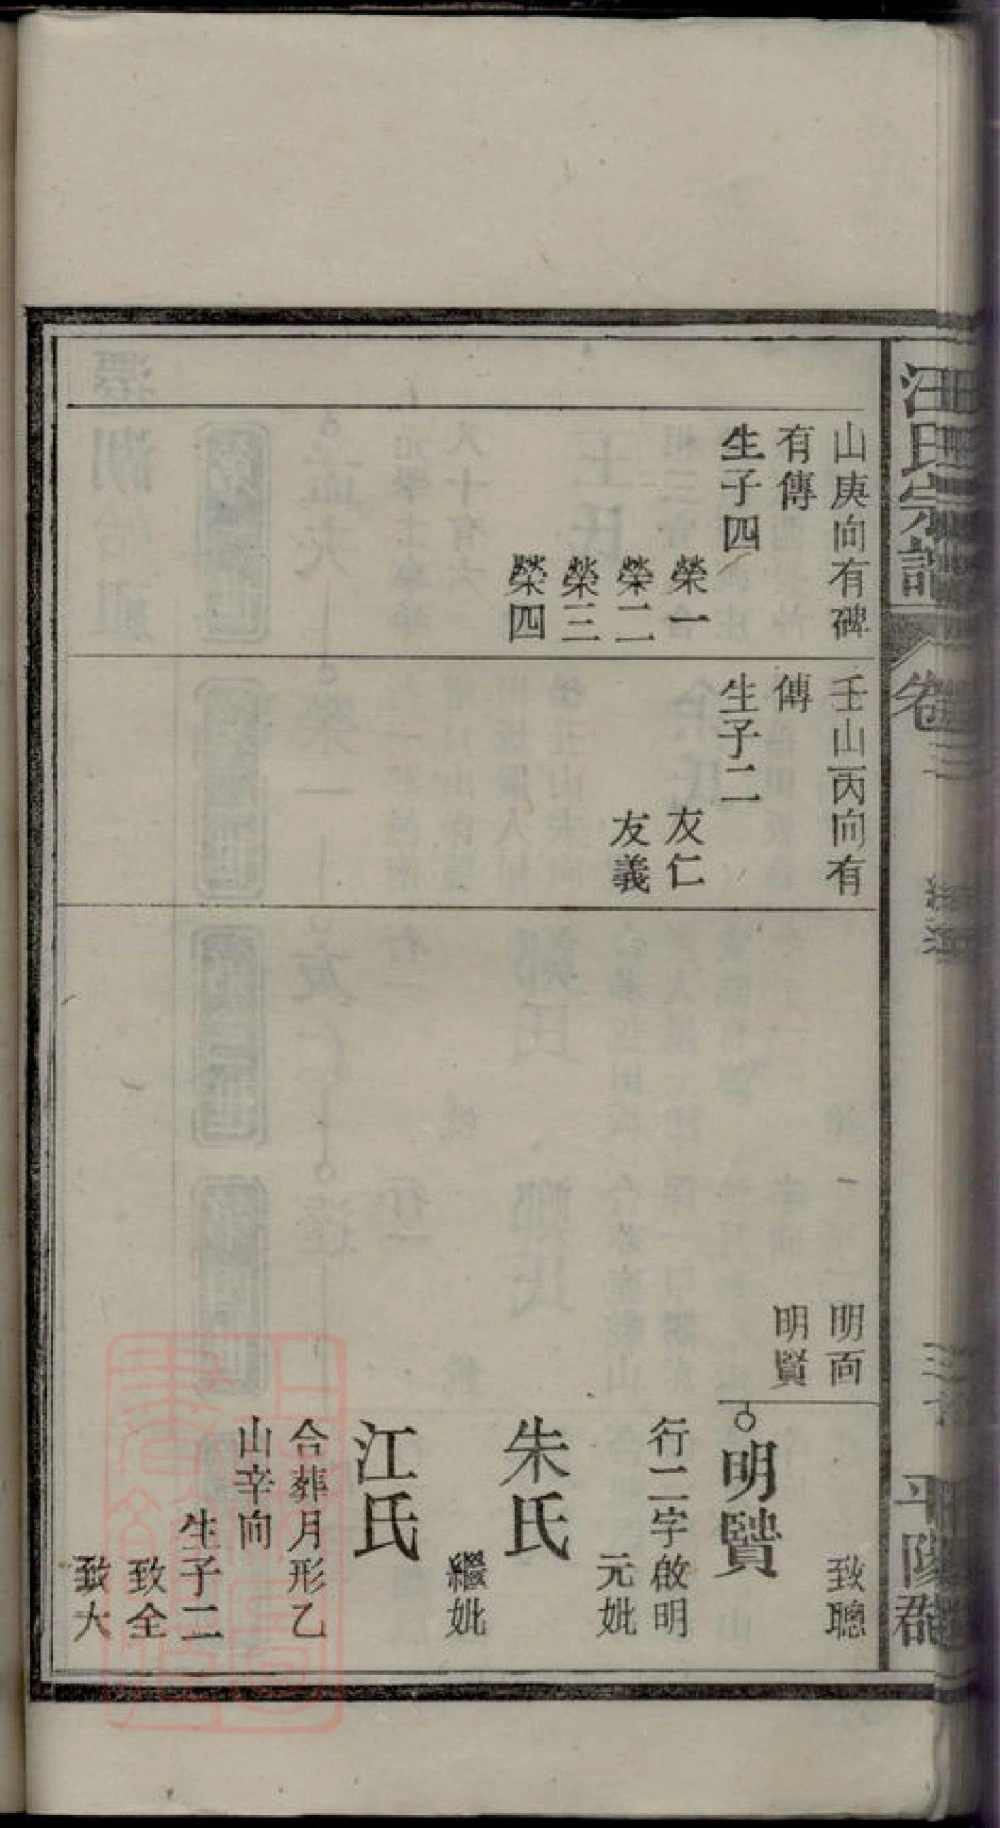 汪氏宗譜
卷三
平陽郡
山庚向有碑
有傳
生子四
榮一
榮二
榮三
榮四
壬山丙向有
傳
生子二
友仁
友義
明向
明賢
致聰
明賢
行二字啟明
元妣
朱氏
繼妣
江氏
合葬月形乙
山辛向
生子二
致全
致大